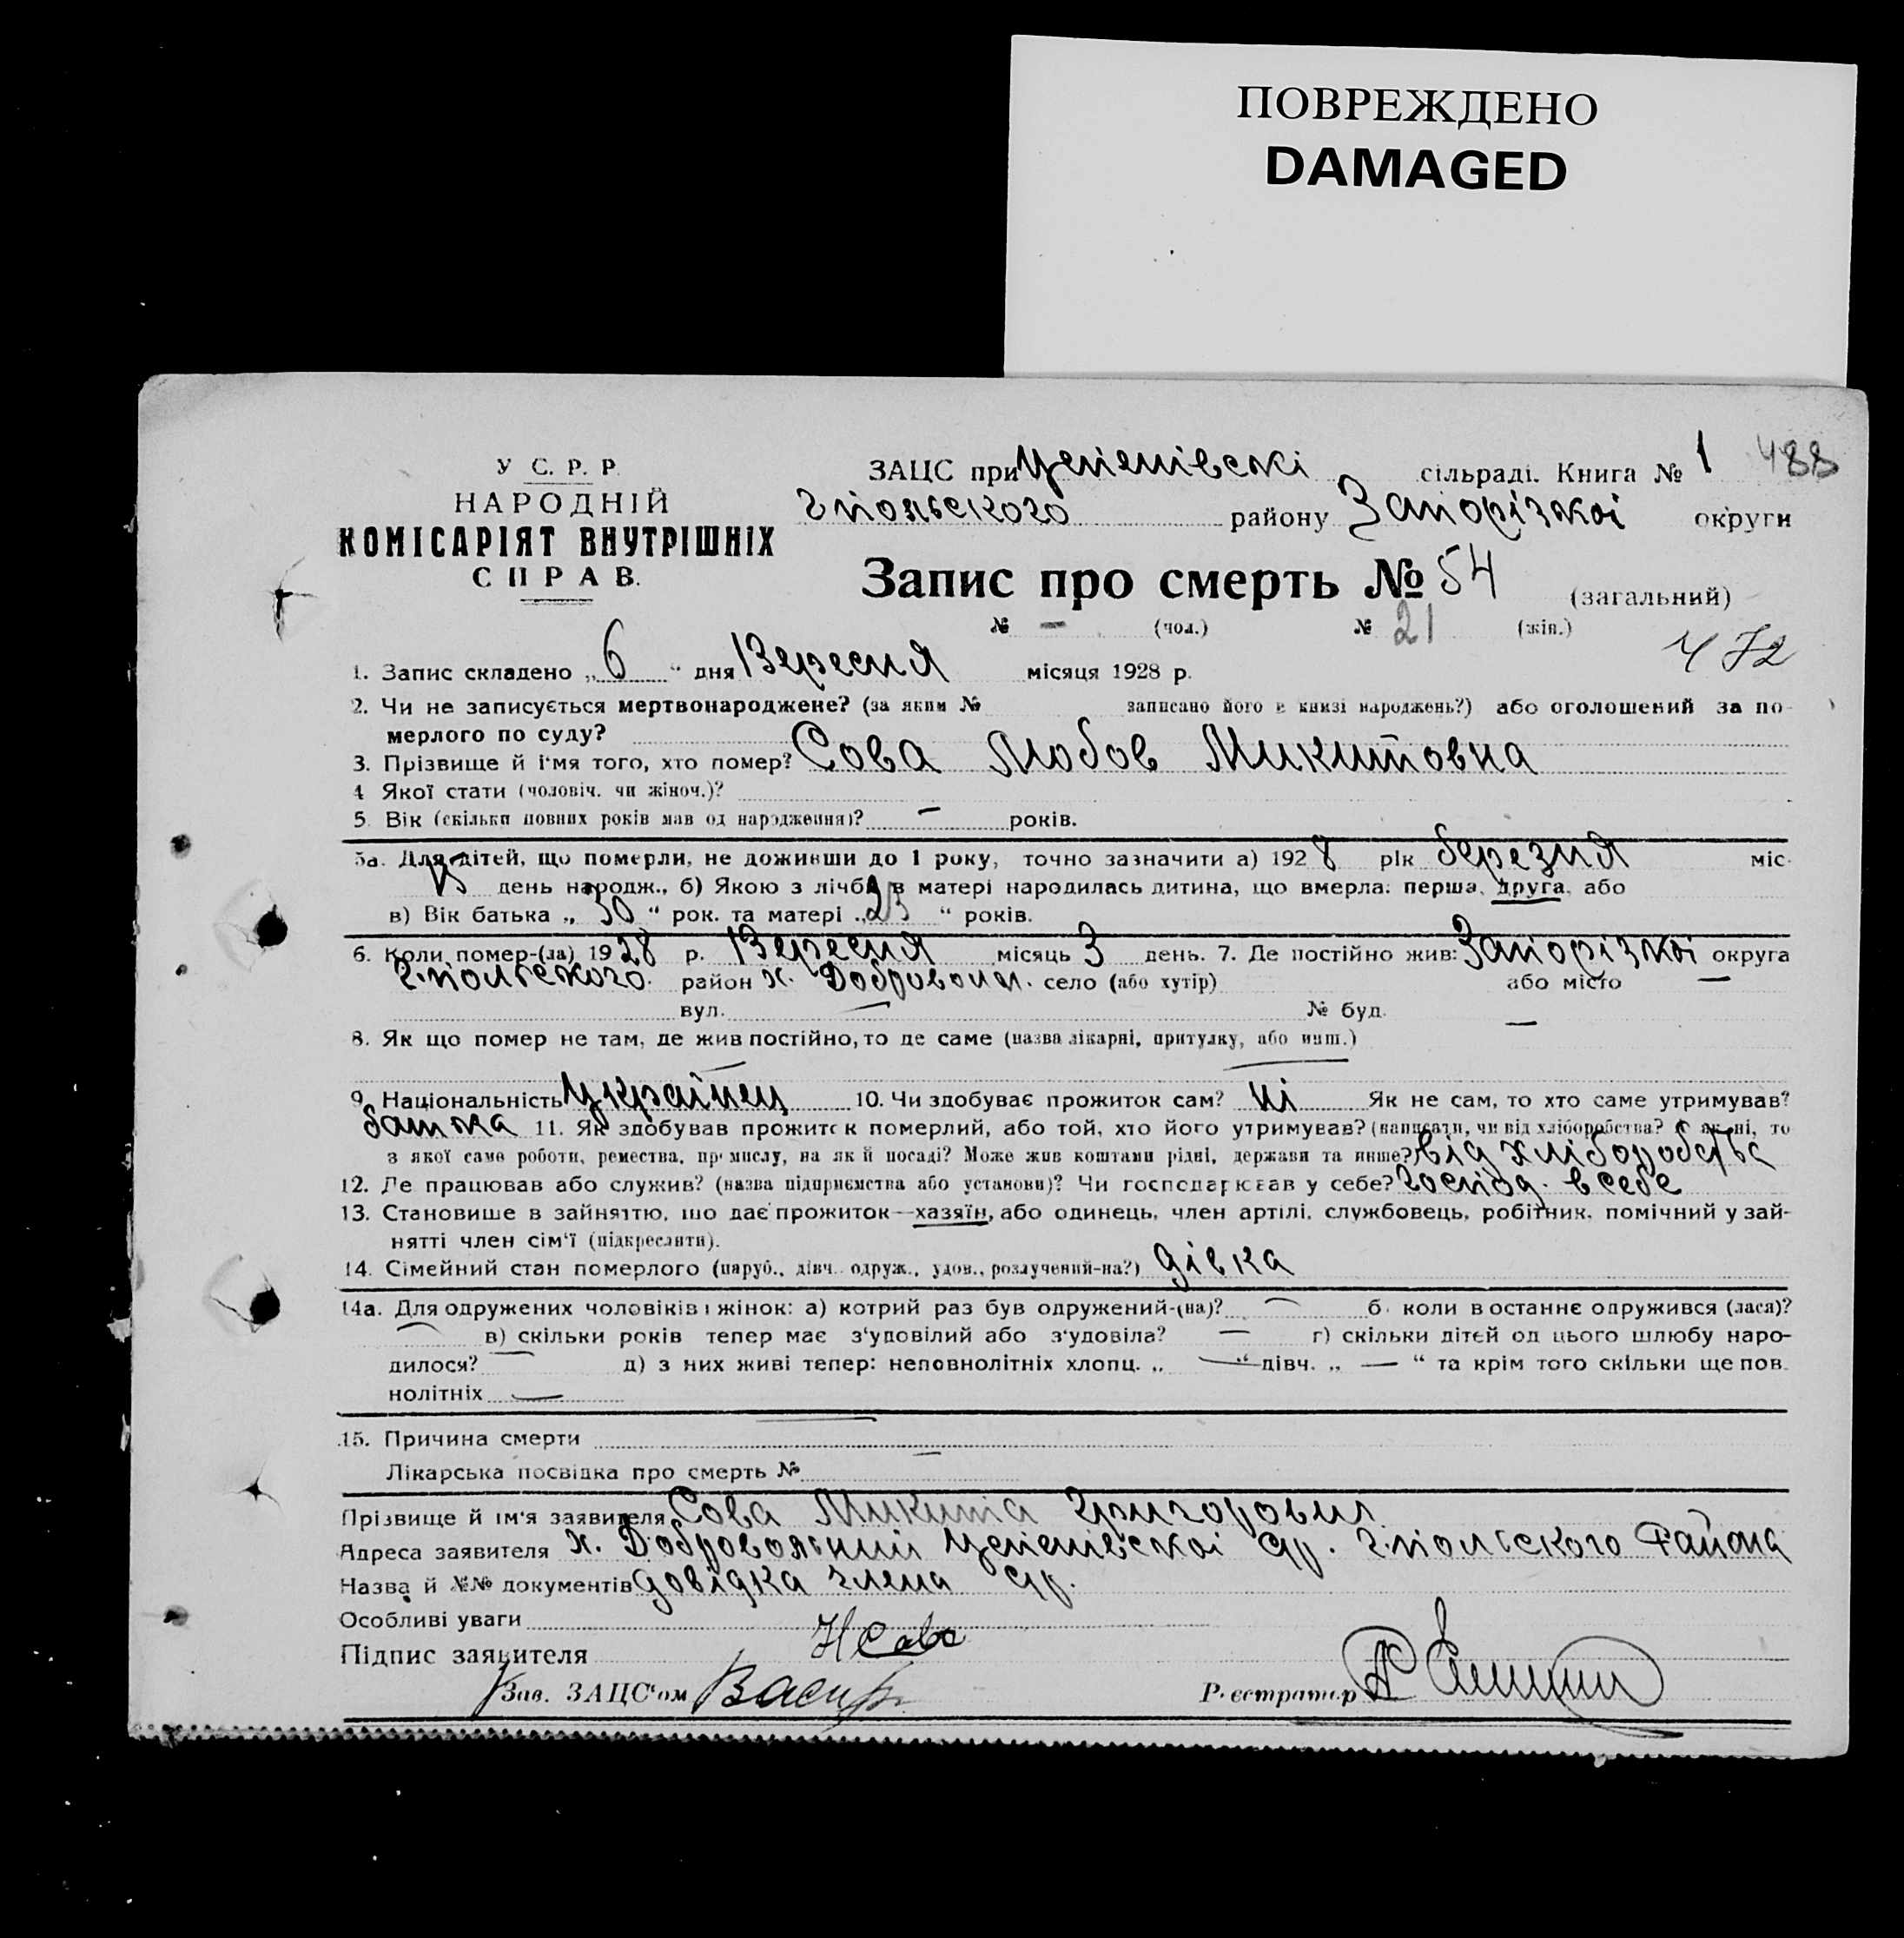 ПОВРЕЖДЕНО
DAMAGED
У С. Р. Р.
НАРОДНІЙ
КОМІСАРІЯТ ВНУТРІШНІХ
СПРАВ.
ЗАЦС при сільраді. Книга № 1 488
Гпольского району Запорізкоі округи
Запис про смерть № 54 (загальний)
№ — (чол.) № 21 (жін.)
472
1. Запис складено „ 6 “ дня Вересня місяця 1928 р.
2. Чи не записується мертвонароджене? (за яким № записано його в книзі народжень?) або оголошений за по-
мерлого по суду?
3. Прізвище й і'мя того, хто помер? Сова Любов Микитовна
4 Якої стати (чоловіч. чи жіноч.)?
5. Вік (скільки повних років мав од народження)? — років.
5а. Для дітей, що померли, не доживши до 1 року, точно зазначити а) 1928 рік березня міс.
день народж., б) Якою з лічби в матері народилась дитина, що вмерла: перша, друга, або
в) Вік батька „ 30 “ рок. та матері „ 23 “ років.
6. Коли помер-(ла) 1928 р. Вересня місяць 3 день. 7. Де постійно жив: Запорізкоі округа
Г.польского район х. Добровольн. село (або хутір) або місто —
вул. — № буд. —
8. Як що помер не там, де жив постійно, то де саме (назва лікарні, притулку, або инш.)
—
9. Національність Українец 10. Чи здобуває прожиток сам? ні Як не сам, то хто саме утримував?
батька 11. Як здобував прожиток померлий, або той, хто його утримував? (написати, чи від хліборобства? Як ні, то
з якої саме роботи, ремества, промислу, на якій посаді? Може жив коштами рідні, держави та инше?) від хліборобства
12. Де працював або служив? (назва підприємства або установи)? Чи господарював у себе? господ. в себе
13. Становище в зайняттю, що дає прожиток—хазяїн, або одинець, член артілі, службовець, робітник, помічний у зай-
нятті член сім'ї (підкреслити).
14. Сімейний стан померлого (паруб., дівч. одруж., удов., розлучений-на?) дівка
14а. Для одружених чоловіків і жінок: а) котрий раз був одружений-(на)? — б. коли востаннє одружився (лася)?
— в) скільки років тепер має з'удовілий або з'удовіла? — г) скільки дітей од цього шлюбу наро-
дилося? — д) з них живі тепер: неповнолітніх хлопц. „ — “ дівч. „ — “ та крім того скільки ще пов.
нолітніх —
15. Причина смерти —
Лікарська посвідка про смерть № —
Прізвище й ім'я заявителя Сова Микита Григорович
Адреса заявителя х. Добровольний Г.польского Района
Назва й №№ документів довідка члена
Особливі уваги
Підпис заявителя Н Сова
Зав. ЗАЦС'ом
Реєстратор